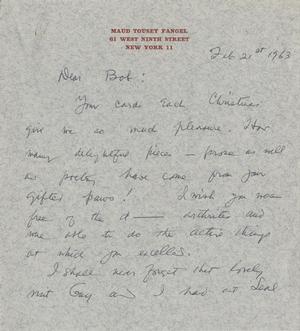 MAUD TOUSEY FANGEL
61 WEST NINTH STREET
NEW YORK 11
Feb 21st 1963
Dear Bob:
Your cards each Christmas
give me so much pleasure. How
many delightful pieces — prose as well
as poetry have come from your
gifted paws! I wish you were
free of the d—— arthritis and
were able to do the active things
at which you excelled.
I shall never forget that lovely
visit Guy and I had at Seal